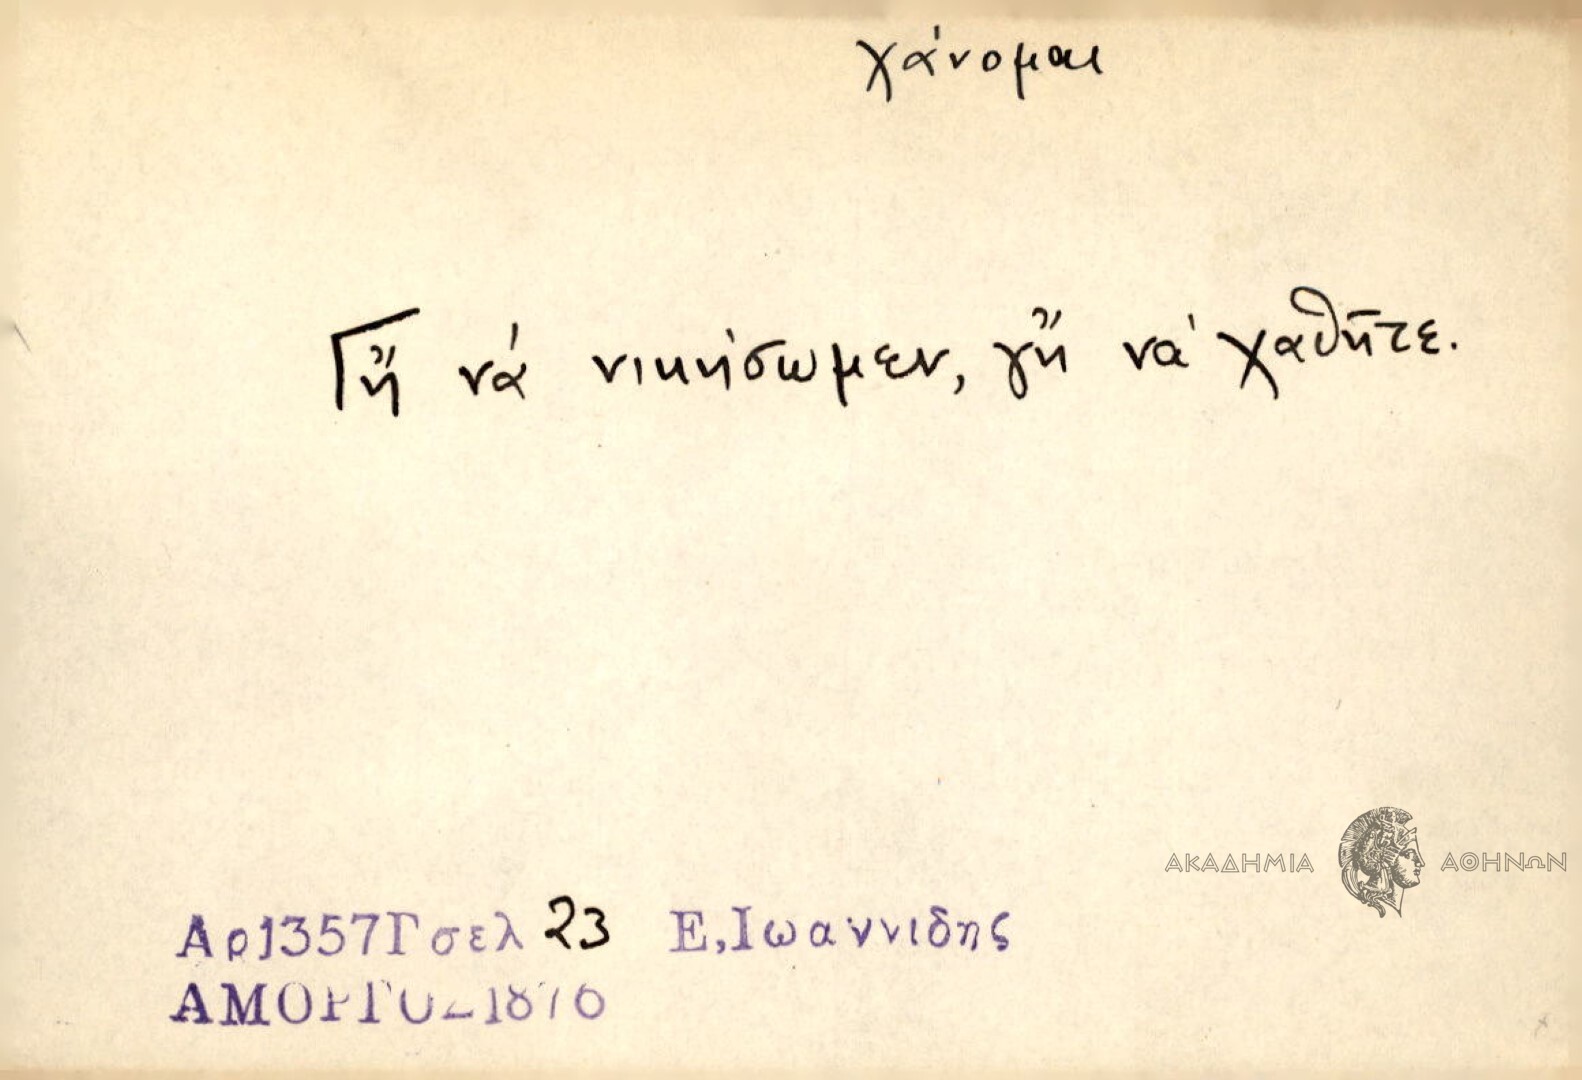 χάνομαι
Γἤ νά νικήσωμεν, γἤ νά χαθῆτε.
ΑΚΑΔΗΜΙΑ ΑΘΗΝΩΝ
Αρ1357Γσελ 23 Ε,Ιωαννιδης
ΑΜΟΡΓΟΣ1876